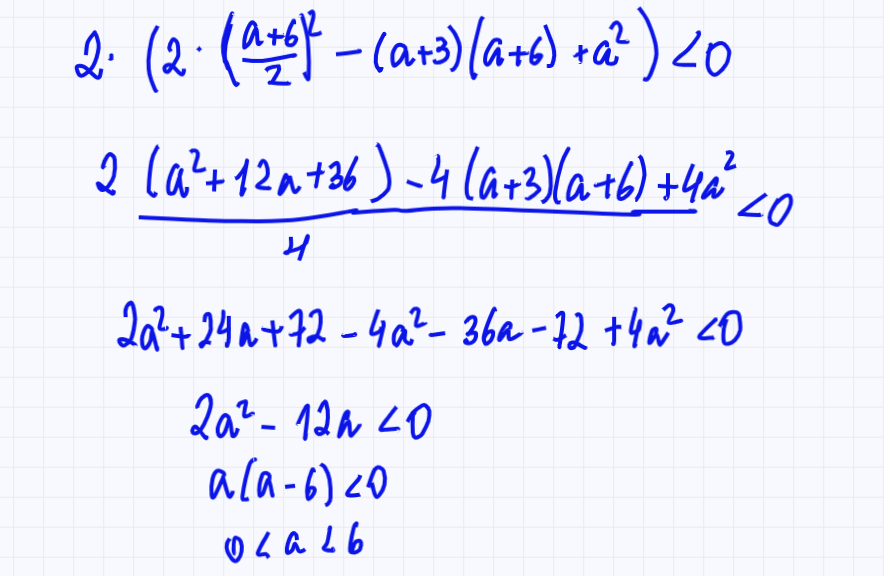 2 · (2 · ((a+6)/2)² − (a+3)(a+6) + a²) < 0
2 (a² + 12a + 36) − 4(a+3)(a+6) + 4a² < 0
4
2a² + 24a + 72 − 4a² − 36a − 72 + 4a² < 0
2a² − 12a < 0
a(a − 6) < 0
0 < a < 6